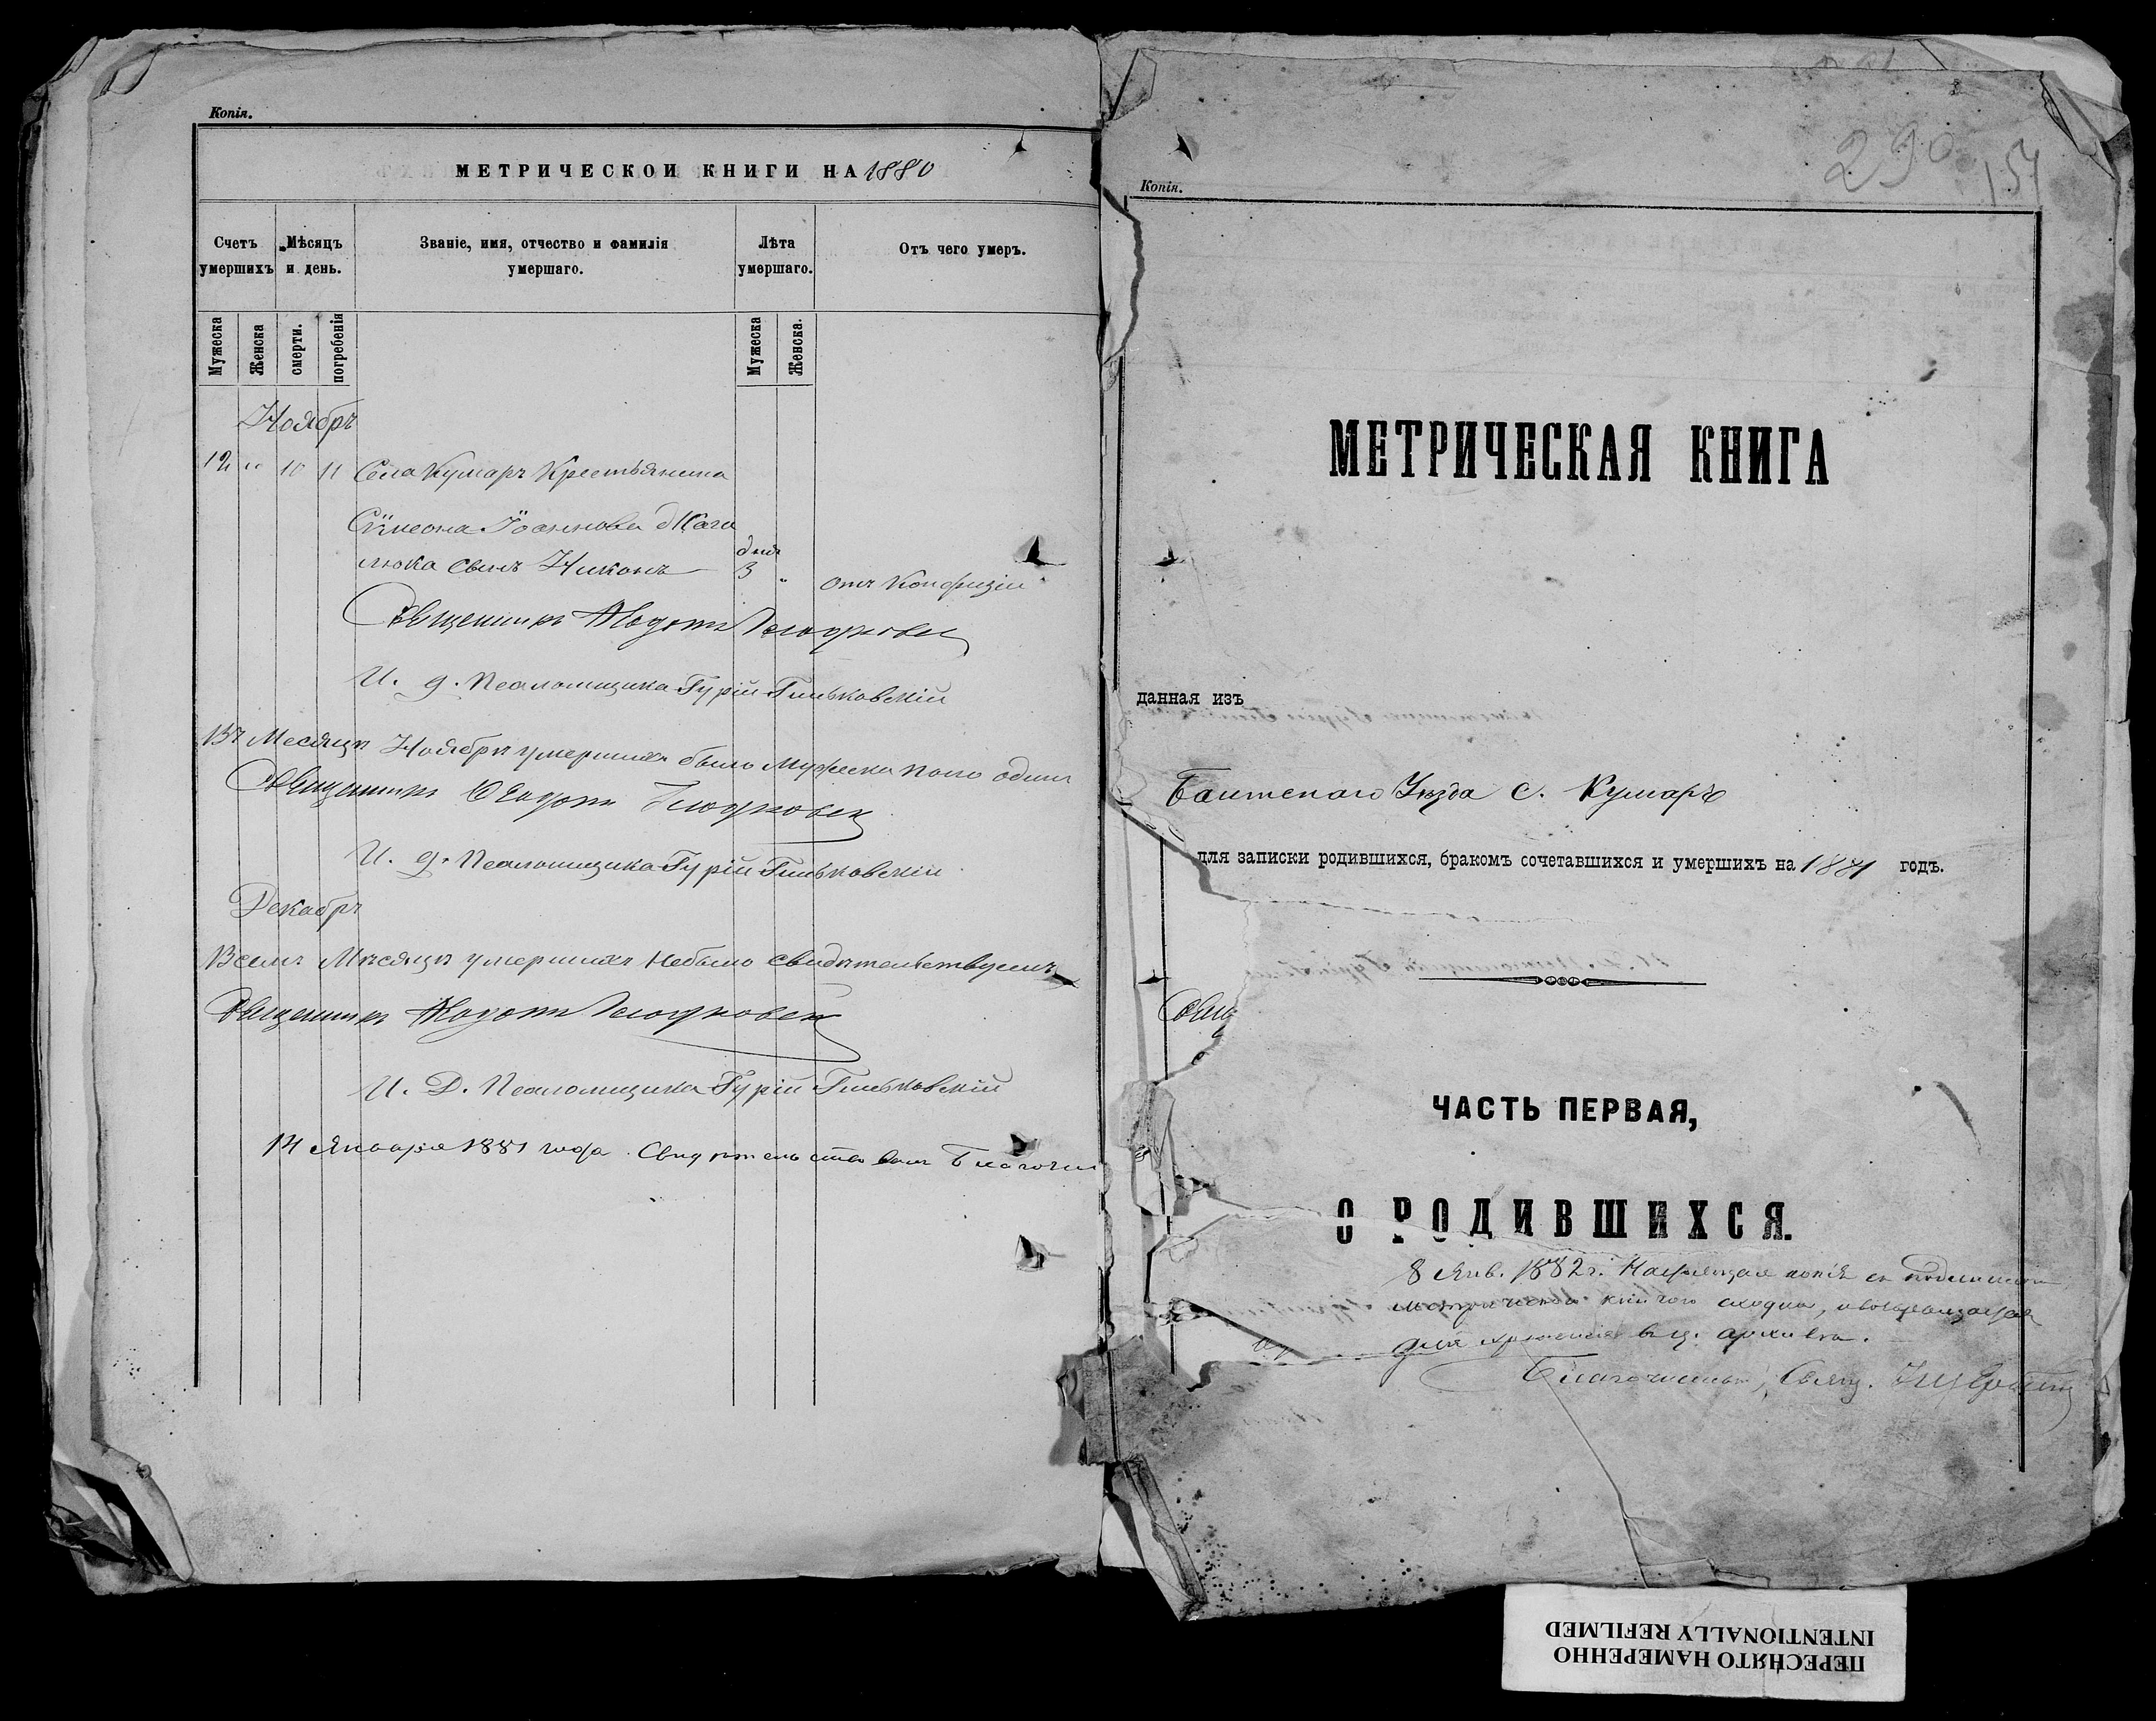 Копія.
МЕТРИЧЕСКОЙ КНИГИ НА 1880
Счетъ умершихъ
Мѣсяцъ и день.
Званіе, имя, отчество и фамилія умершаго.
Лѣта умершаго.
Отъ чего умеръ.
Мужеска
Женска
смерти.
погребенія
Мужеска
Женска.
Ноябръ
12 " 10 11 Села Кумаръ Крестьянина
Симеона Іоаннова
дня
сынъ Никонъ 3 " отъ Конфузіи
Священникъ
И. д. Псаломщика Гурій Гиньковскій
Въ Месяцѣ Ноябрѣ умершихъ было Мужеска пола одинъ
Священникъ
И. д. Псаломщика Гурій Гиньковскій
Декабръ
Всемъ Мѣсяцѣ умершихъ Небыло свидѣтельствуемъ
Священникъ
И. Д. Псаломщика Гурій Гиньковскій
14 Января 1881 года. Свидѣтельствовалъ Благочин
290
154
Копія.
МЕТРИЧЕСКАЯ КНИГА
данная изъ
Балтскаго Уѣзда с. Кумаръ
для записки родившихся, бракомъ сочетавшихся и умершихъ на 1881 годъ.
Свящ
ЧАСТЬ ПЕРВАЯ,
О РОДИВШИХСЯ.
8 Янв. 1882 г. Настоящая копія съ подлинною
метрическою книгою сходна, и возвращается
для храненія въ ц. архивѣ.
Благочинный, Свящ.
ПЕРЕСНЯТО НАМЕРЕННО
INTENTIONALLY REFILMED